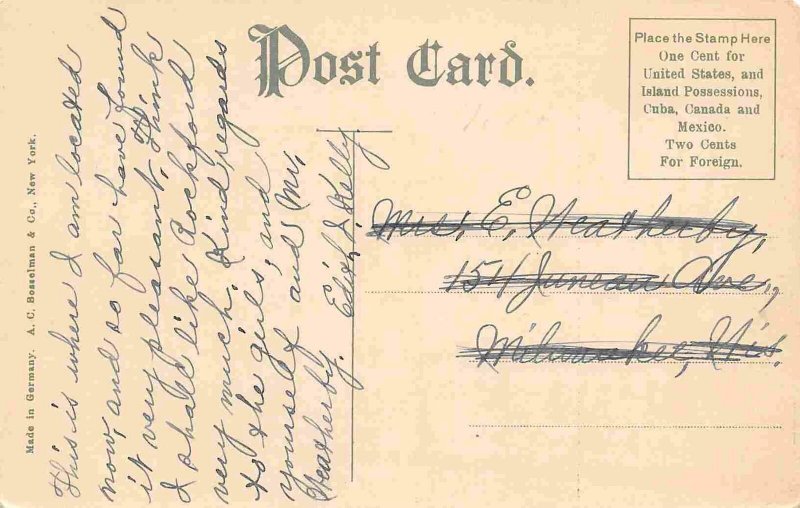 Post Card.
Place the Stamp Here
One Cent for
United States, and
Island Possessions,
Cuba, Canada and
Mexico.
Two Cents
For Foreign.
Made in Germany. A. C. Bosselman & Co., New York.
This is where I am located
now, and so far have found
it very pleasant. Think
I shall like Rockford
very much. Kind regards
to the girls, and
yourself and Mr.
Weatherby. Edith I. Kelly
Mrs. E. Weatherby,
154 Juneau Ave.,
Milwaukee, Wis.